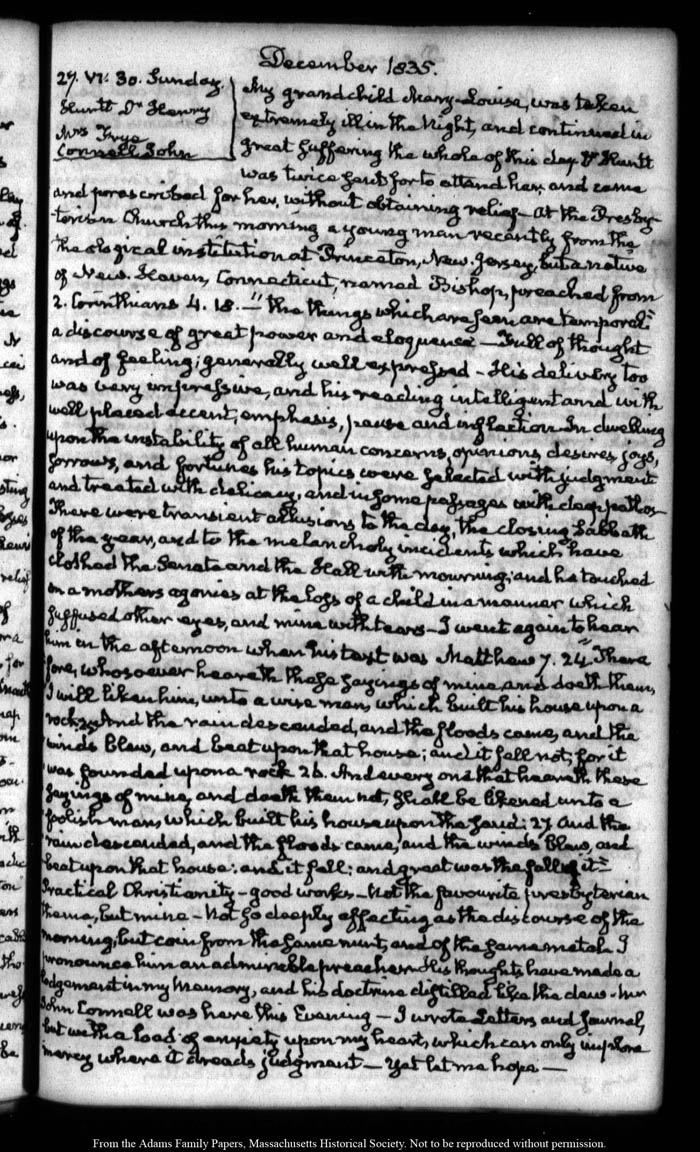 December 1835.
27. VI: 30. Sunday.
Huntt Dr Henry
Mrs Frye
Connell John
My grandchild Mary-Louisa, was taken
extremely ill in the Night, and continued in
great suffering the whole of this day. Dr Huntt
was twice sent for to attend her, and came
and prescribed for her, without obtaining relief – At the Presby-
terian Church this morning a young man recently from the
theological institution at Princeton, New-Jersey, but a native
of New-Haven, Connecticut, named Bishop, preached from
2. Corinthians 4. 18. – "the things which are seen are temporal"
a discourse of great power and eloquence – Full of thought
and of feeling; generally well expressed – His delivery too
was very impressive, and his reading intelligent and with
well placed accent, emphasis, pause and inflection. In dwelling
upon the instability of all human concerns, opinions, desires, joys,
sorrows, and fortunes his topics were selected with judgment
and treated with delicacy, and in some passages with deep pathos –
There were transient allusions to the day, the closing Sabbath
of the year, and to the melancholy incidents which have
clothed the Senate and the Hall with mourning; and he touched
on a mothers agonies at the loss of a child in a manner which
suffused other eyes, and mine with tears – I went again to hear
him in the afternoon when his text was Matthew 7. 24. "There
fore, whosoever heareth these sayings of mine and doeth them,
I will liken him, unto a wise man, which built his house upon a
rock; 25 And the rain descended, and the floods came, and the
winds blew, and beat upon that house; and it fell not; for it
was founded upon a rock 26. And every one that heareth these
sayings of mine, and doeth them not, shall be likened unto a
foolish man, which built his house upon the sand: 27 And the
rain descended, and the floods came, and the winds blew, and
beat upon that house: and it fell; and great was the fall of it"
Practical Christianity – good works – Not the favourite presbyterian
theme, but mine – Not so deeply affecting as the discourse of the
morning, but coin from the same mint, and of the same metal. I
pronounce him an admirable preacher – His thoughts have made a
lodgement in my memory, and his doctrine distilled like the dew. Mr
John Connell was here this Evening – I wrote Letters and Journal,
but with a load of anxiety upon my heart, which can only implore
mercy where it dreads judgment – Yet let me hope –
From the Adams Family Papers, Massachusetts Historical Society. Not to be reproduced without permission.